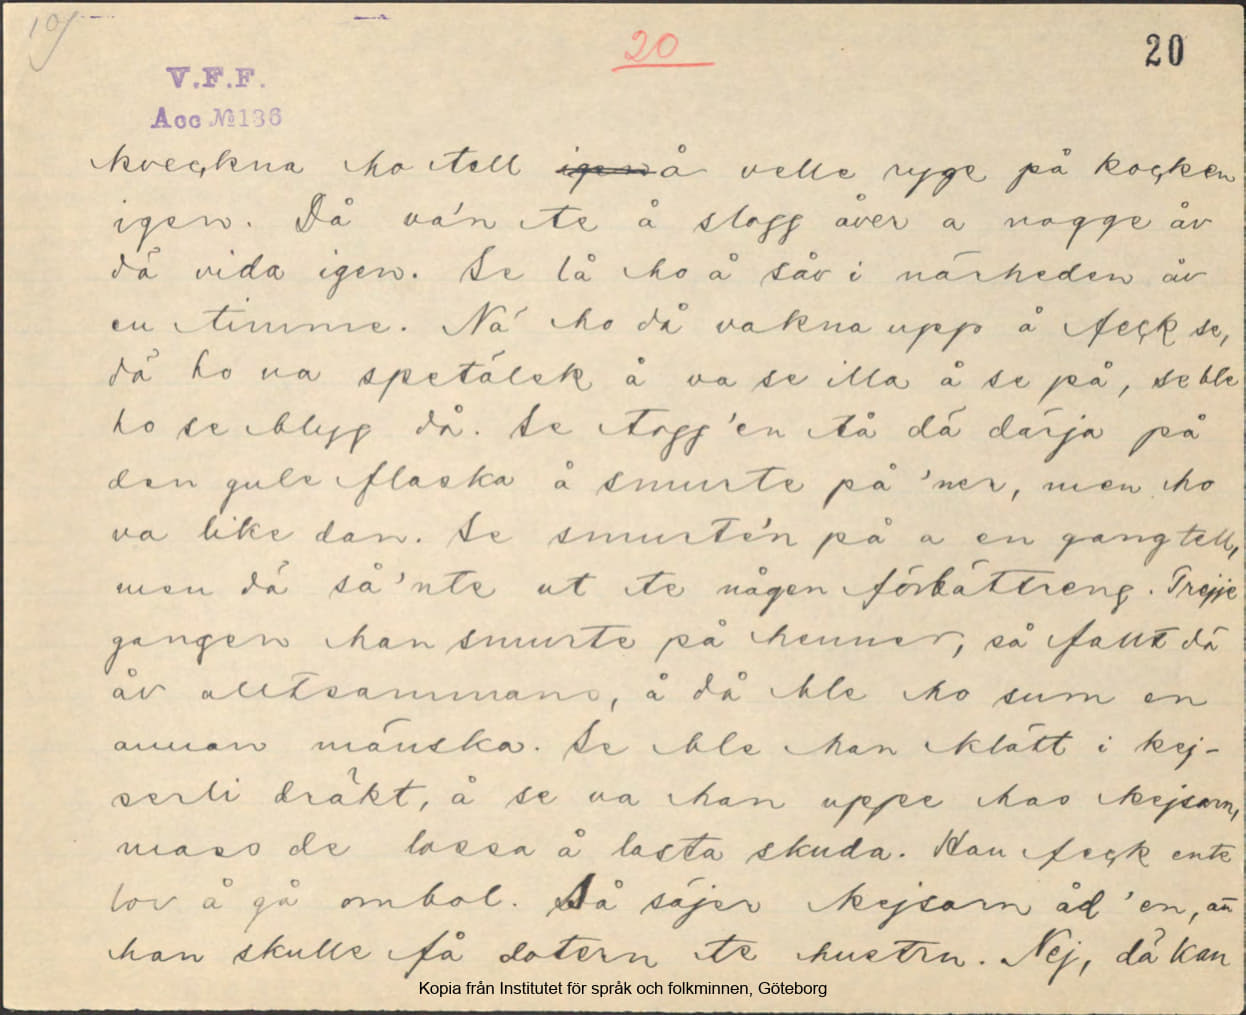 10/
20
20
V.F.F.
Acc №136
kveçkna ho tell igen å velle ryge på koçken
igen. Då va'n te å slogg åver a nogge åv
dä vida igen. Se lå ho å såv i närheden åv
en timme. Nä' ho då vakna upp å feçk se,
dä ho va spetälsk å va se illa å se på, se ble
ho se blyg då. Se togg 'en tå dä därja på
den gule flaska å smurte på 'ner, men ho
va like dan. Se smurte'n på a en gang tell,
men dä så 'nte ut te någen förbättreng. Trejje
gangen han smurte på henner, så fallt dä
åv alltsammans, å då ble ho sum en
annan mänska. Se ble han klätt i kej-
serli dräkt, å se va han uppe hao kejsarn,
maso de lossa å lasta skuda. Han feçk ente
lov å gå ombol. Så säjer kejsarn åd 'en, an
han skulle få dotern te hustru. Nej, dä kan
Kopia från Institutet för språk och folkminnen, Göteborg